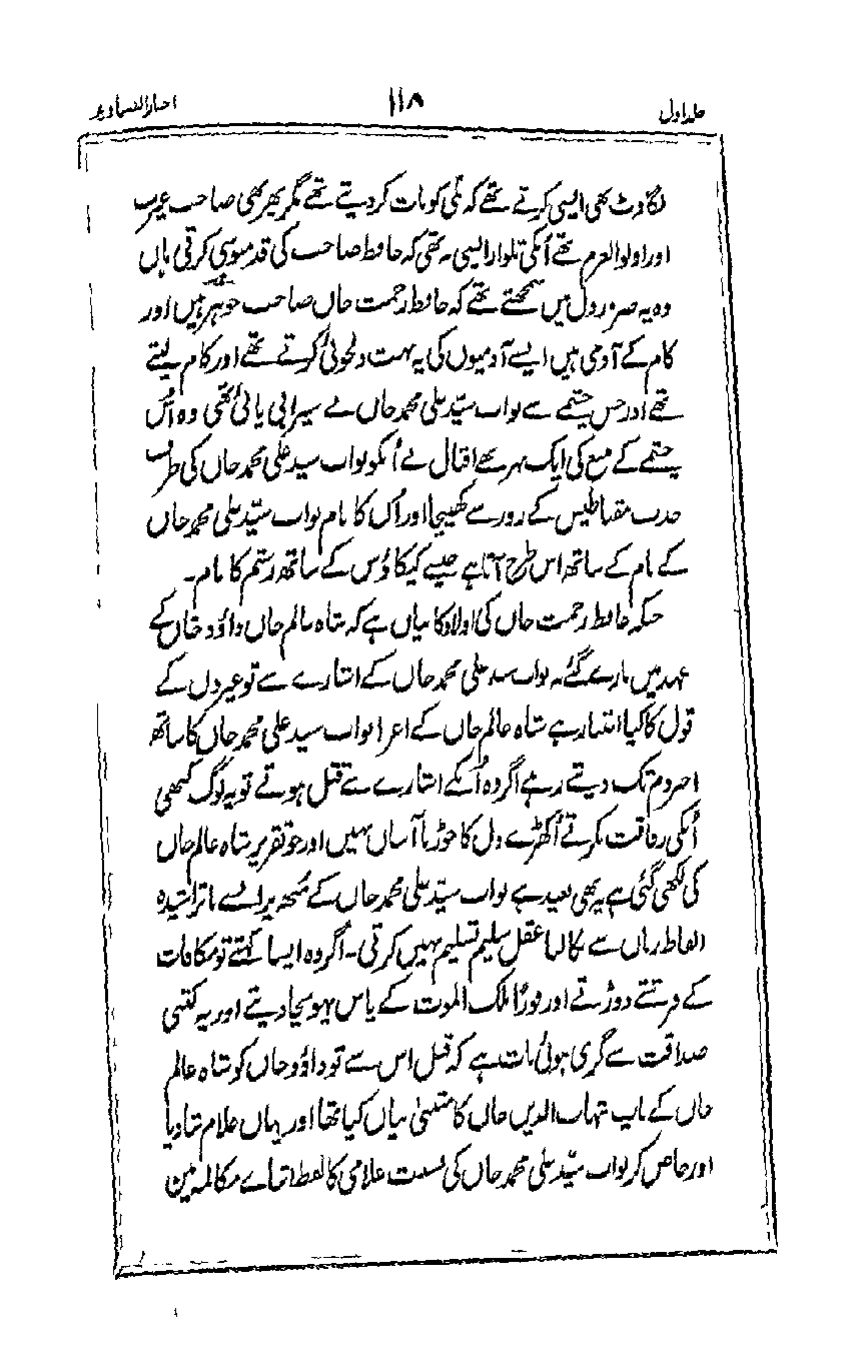 جلد اول ۱۱۸ اخبار الصنادید
لگاوٹ بھی ایسی کرتے تھے کہ بلی کو مات کر دیتے تھے مگر پھر بھی صاحب عزت
اور اولو العزم تھے اُنکی تلوار ایسی نہ تھی کہ حافظ صاحب کی قدمبوسی کرتی ہاں
وہ یہ ضرور دل میں سمجھتے تھے کہ حافظ رحمت خاں صاحب جوہر ہیں اور
کام کے آدمی ہیں ایسے آدمیوں کی یہ بہت دلجوئی کرتے تھے اور کام لیتے
تھے اور جس چشمے سے نواب سید علی محمد خاں نے سیرابی پائی تھی وہ اُس
چشمے کے منبع کی ایک نہر تھے اقبال نے اُنکو نواب سید علی محمد خاں کی طرف
جذب مقناطیس کے زور سے کھینچا اور اُن کا نام نواب سید علی محمد خاں
کے نام کے ساتھ اس طرح آتا ہے جیسے کیکاؤس کے ساتھ رستم کا نام۔
جبکہ حافظ رحمت خاں کی اولاد کا بیاں ہے کہ شاہ عالم خاں داؤد خاں کے
عہد میں مارے گئے نہ نواب سید علی محمد خاں کے اشارے سے تو غیروں کے
قول کا کیا اعتبار ہے شاہ عالم خاں کے اعزا نواب سید علی محمد خاں کا ساتھ
اخیر دم تک دیتے رہے اگر وہ اُنکے اشارے سے قتل ہوتے تو یہ لوگ کبھی
اُنکی رفاقت نکرتے اُکھڑے دل کا جوڑنا آساں نہیں اور جو تقریر شاہ عالم خاں
کی لکھی گئی ہے یہ بھی بعید ہے نواب سید علی محمد خاں کے مُنھ پر ایسے ناتراشیدہ
الفاظ زباں سے نکالنا عقل سلیم تسلیم نہیں کرتی۔ اگر وہ ایسا کہتے تو مکافات
کے فرشتے دوڑتے اور فوراً ملک الموت کے پاس پہونچا دیتے اور یہ کتنی
صداقت سے گری ہوئی بات ہے کہ قبل اس سے تو داؤد خاں کو شاہ عالم
خاں کے باپ شہاب الدیں خاں کا متبنیٰ بیاں کیا تھا اور یہاں غلام بتا دیا
اور خاص کر نواب سید علی محمد خاں کی نسبت غلامی کا لفظ اثنائے مکالمہ میں